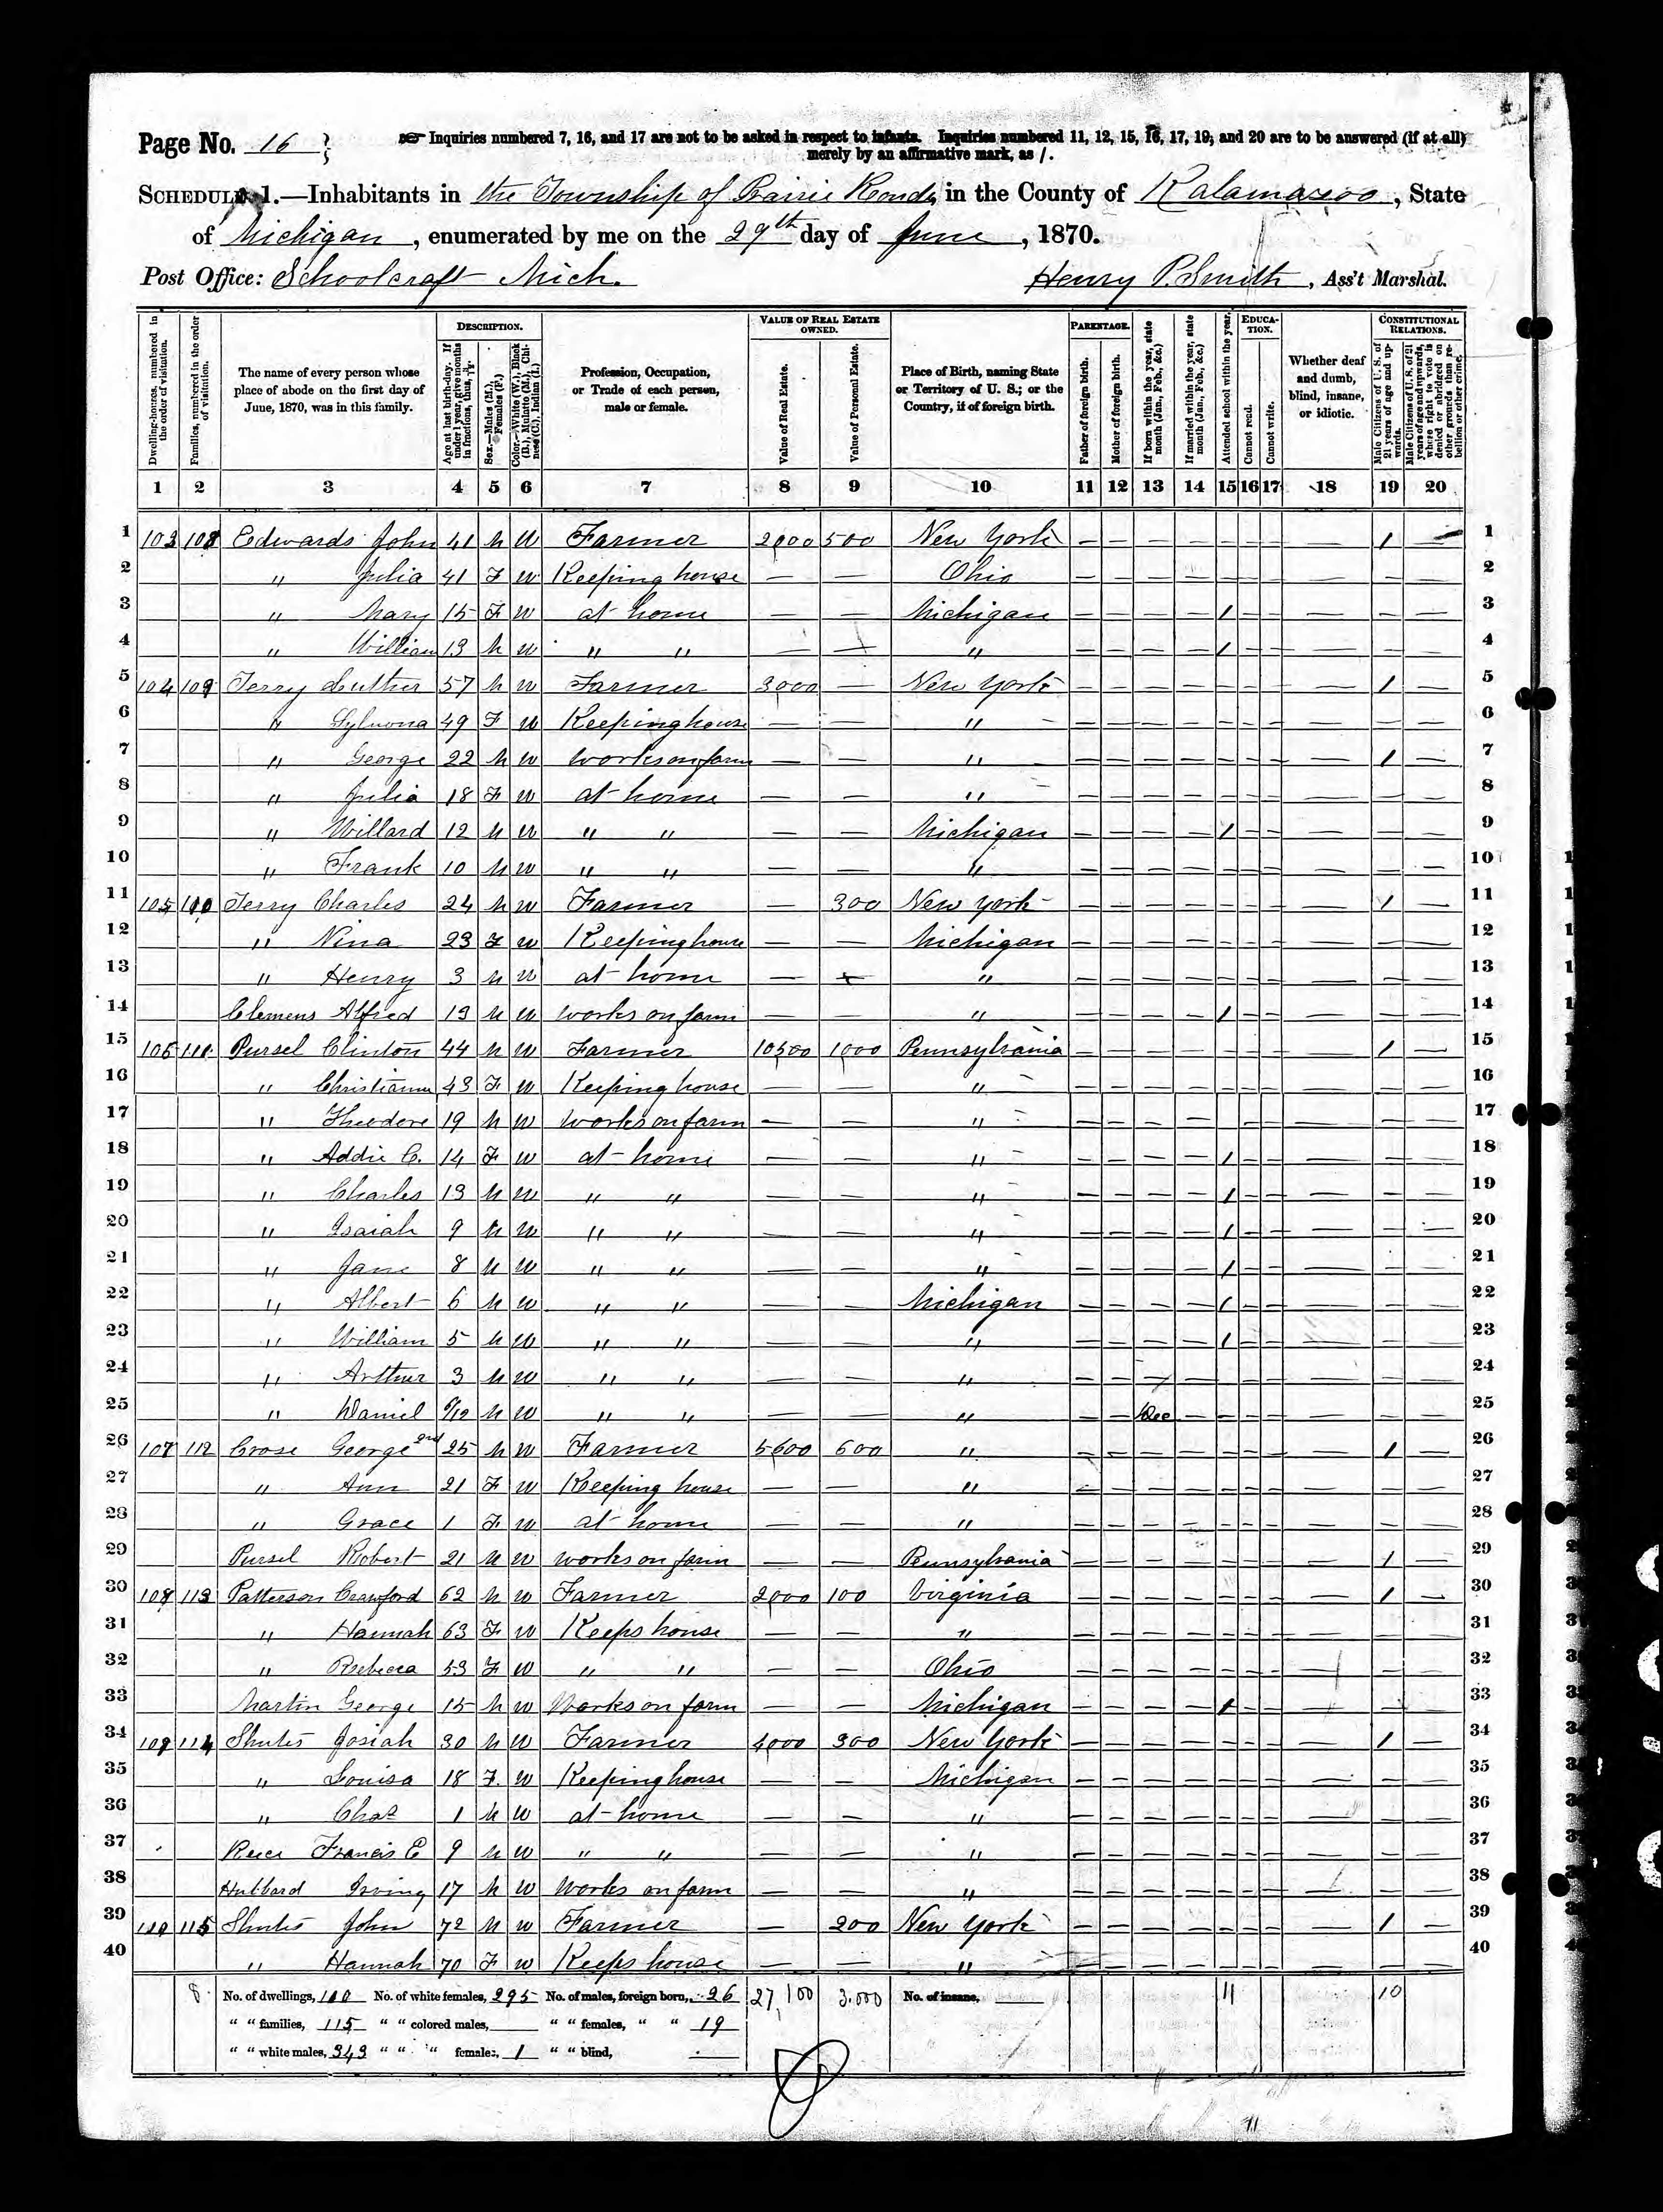 Page No. 16
Inquiries numbered 7, 16, and 17 are not to be asked in respect to infants. Inquiries numbered 11, 12, 15, 16, 17, 19, and 20 are to be answered (if at all)
merely by an affirmative mark, as /.
SCHEDULE 1.—Inhabitants in the Township of Prairie Ronde, in the County of Kalamazoo, State
of Michigan, enumerated by me on the 29th day of June, 1870.
Post Office: Schoolcraft Mich. Henry P. Smith, Ass't Marshal.
Dwelling-houses, numbered in the order of visitation.
Families, numbered in the order of visitation.
The name of every person whose place of abode on the first day of June, 1870, was in this family.
DESCRIPTION.
Age at last birth-day. If under 1 year, give months in fractions, thus, 3/12.
Sex.—Males (M.), Females (F.)
Color.—White (W.), Black (B.), Mulatto (M.), Chinese (C.), Indian (I.)
Profession, Occupation, or Trade of each person, male or female.
VALUE OF REAL ESTATE OWNED.
Value of Real Estate.
Value of Personal Estate.
Place of Birth, naming State or Territory of U. S.; or the Country, if of foreign birth.
PARENTAGE.
Father of foreign birth.
Mother of foreign birth.
If born within the year, state month (Jan., Feb., &c.)
If married within the year, state month (Jan., Feb., &c.)
Attended school within the year.
EDUCATION.
Cannot read.
Cannot write.
Whether deaf and dumb, blind, insane, or idiotic.
CONSTITUTIONAL RELATIONS.
Male Citizens of U. S. of 21 years of age and upwards.
Male Citizens of U. S. of 21 years of age and upwards, where right to vote is denied or abridged on other grounds than rebellion or other crime.
1 2 3 4 5 6 7 8 9 10 11 12 13 14 15 16 17 18 19 20
1 103 108 Edwards John 41 M W Farmer 2000 500 New York — — — — — — — — 1 — 1
2 " Julia 41 F W Keeping house — — Ohio — — — — — — — — — — 2
3 " Mary 15 F W at home — — Michigan — — — — 1 — — — — — 3
4 " William 13 M W " " — — " — — — — 1 — — — — — 4
5 104 109 Terry Luther 57 M W Farmer 3000 — New York — — — — — — — — 1 — 5
6 " Sylvona 49 F W Keeping house — — " — — — — — — — — — — 6
7 " George 22 M W works on farm — — " — — — — — — — — 1 — 7
8 " Julia 18 F W at home — — " — — — — — — — — — — 8
9 " Willard 12 M W " " — — Michigan — — — — 1 — — — — — 9
10 " Frank 10 M W " " — — " — — — — — — — — — — 10
11 105 110 Terry Charles 24 M W Farmer — 300 New York — — — — — — — — 1 — 11
12 " Nina 23 F W Keeping house — — Michigan — — — — — — — — — — 12
13 " Henry 3 M W at home — — " — — — — — — — — — — 13
14 Clemens Alfred 13 M W works on farm — — " — — — — 1 — — — — — 14
15 106 111 Pursel Clinton 44 M W Farmer 10500 1000 Pennsylvania — — — — — — — — 1 — 15
16 " Christianna 43 F W Keeping house — — " — — — — — — — — — — 16
17 " Theodore 19 M W works on farm — — " — — — — — — — — — — 17
18 " Addie C. 14 F W at home — — " — — — — 1 — — — — — 18
19 " Charles 13 M W " " — — " — — — — 1 — — — — — 19
20 " Isaiah 9 M W " " — — " — — — — 1 — — — — — 20
21 " Jane 8 M W " " — — " — — — — 1 — — — — — 21
22 " Albert 6 M W " " — — Michigan — — — — 1 — — — — — 22
23 " William 5 M W " " — — " — — — — 1 — — — — — 23
24 " Arthur 3 M W " " — — " — — — — — — — — — — 24
25 " Daniel 6/12 M W " " — — " — — Dec — — — — — — — 25
26 107 112 Crose George 2nd 25 M W Farmer 5600 600 " — — — — — — — — 1 — 26
27 " Ann 21 F W Keeping house — — " — — — — — — — — — — 27
28 " Grace 1 F W at home — — " — — — — — — — — — — 28
29 Pursel Robert 21 M W works on farm — — Pennsylvania — — — — — — — — 1 — 29
30 108 113 Patterson Crawford 62 M W Farmer 2000 100 Virginia — — — — — — — — 1 — 30
31 " Hannah 63 F W Keeps house — — " — — — — — — — — — — 31
32 " Rebecca 53 F W " " — — Ohio — — — — — — — — — — 32
33 Martin George 15 M W Works on farm — — Michigan — — — — 1 — — — — — 33
34 109 114 Shutes Josiah 30 M W Farmer 4000 300 New York — — — — — — — — 1 — 34
35 " Louisa 18 F. W Keeping house — — Michigan — — — — — — — — — — 35
36 " Chas 1 M W at home — — " — — — — — — — — — — 36
37 Reece Francis E 9 M W " " — — " — — — — — — — — — — 37
38 Hubbard Irving 17 M W Works on farm — — " — — — — — — — — — — 38
39 110 115 Shutes John 72 M W Farmer — 200 New York — — — — — — — — 1 — 39
40 " Hannah 70 F W Keeps house — — " — — — — — — — — — — 40
8 No. of dwellings, 110 No. of white females, 295 No. of males, foreign born, 26 27,100 3.000 No. of insane, 11 10
" " families, 115 " " colored males, " " females, " " 19
" " white males, 343 " " " females, 1 " " blind,
11